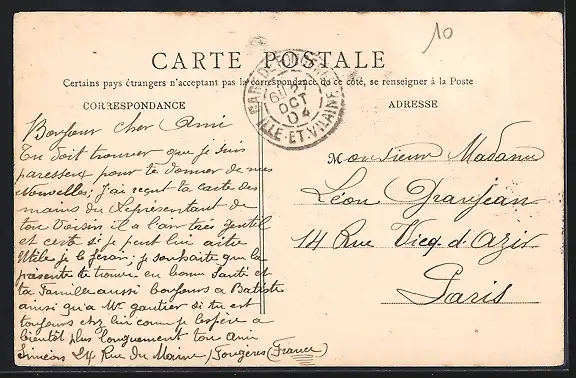 10
CARTE POSTALE
Certains pays étrangers n'acceptant pas la correspondance de ce côté, se renseigner à la Poste
CORRESPONDANCE
ADRESSE
OCT
04
ILLE-ET-VILAINE
Bonjour cher Ami
Tu doit trouver que je suis
paresseux pour te donner de mes
Nouvelles; j'ai reçut la carte des
mains du Représentant de
ton Voisin il a l'air très gentil
et certe si je peut lui aitre
Utile je le ferai; je souhaite que la
présente te trouve en bonne Santé et
ta Famille aussi bonjours a Batiste
ainsi qu'a Mr gautier si tu est
toujours chez lui comme je l'espère a
bientôt plus longuement ton ami
Siméon 24 Rue du Maine, Fougères (France)
Monsieur Madame
Léon Granjean
14 Rue Vicq. d. Azir
Paris